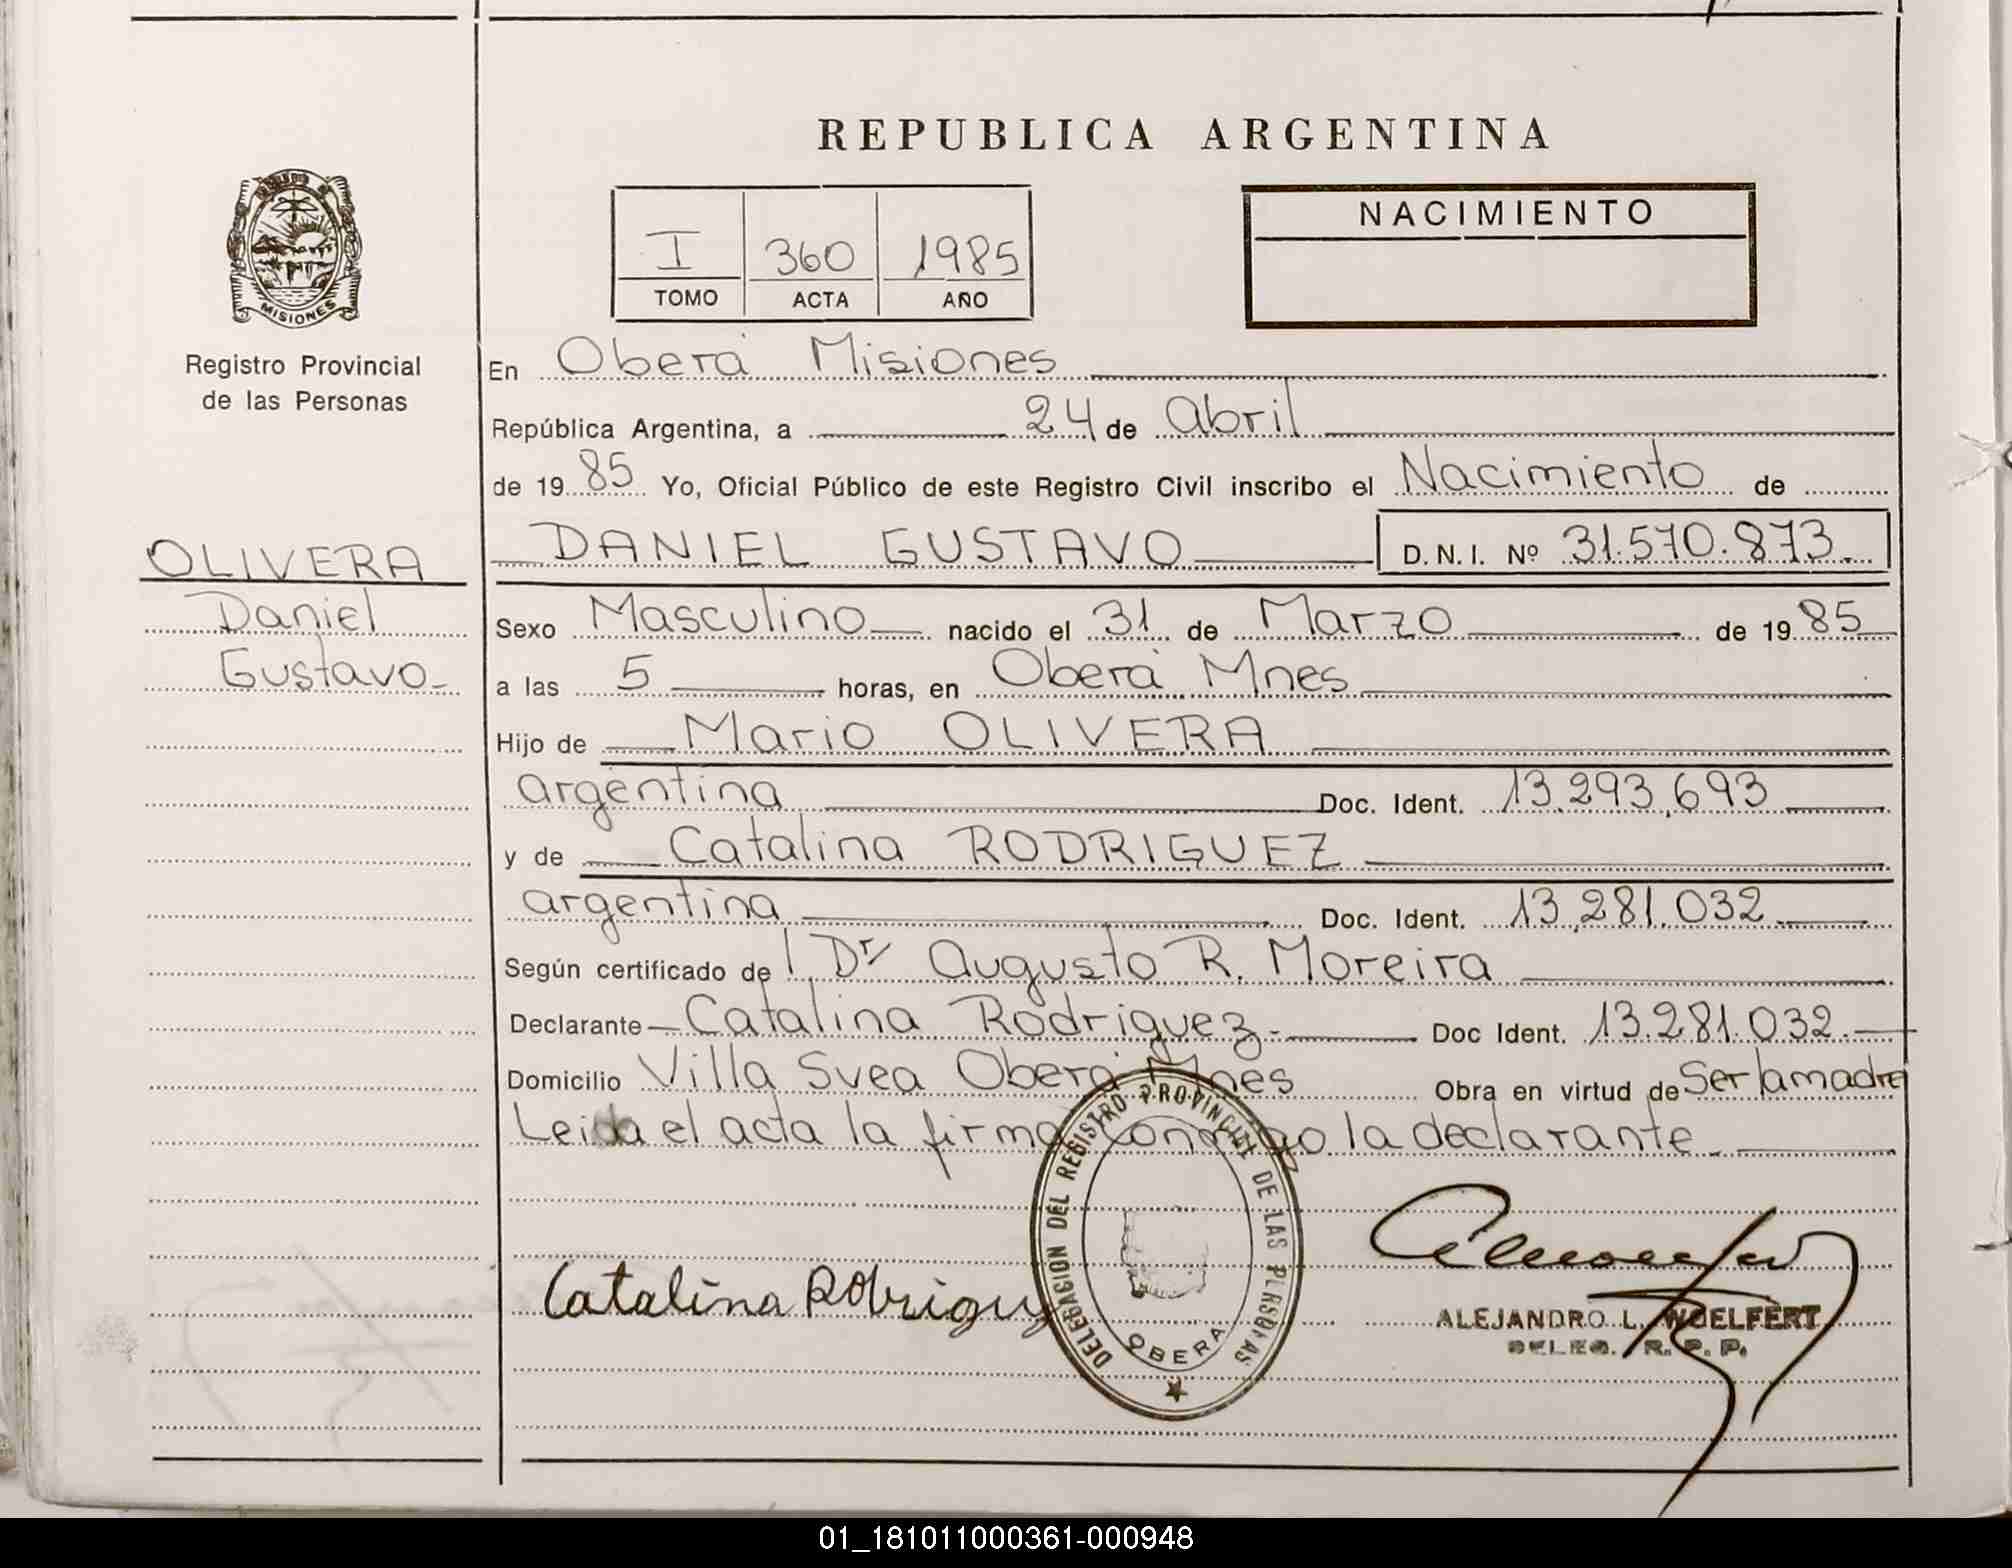 REPUBLICA ARGENTINA
MISIONES
Registro Provincial
de las Personas
I 360 1985
TOMO ACTA AÑO
NACIMIENTO
En Oberá Misiones
República Argentina, a 24 de Abril
de 1985 Yo, Oficial Público de este Registro Civil inscribo el Nacimiento de
OLIVERA
Daniel
Gustavo
DANIEL GUSTAVO D.N.I. Nº 31.570.873.
Sexo Masculino nacido el 31 de Marzo de 1985
a las 5 horas, en Oberá Mnes
Hijo de Mario OLIVERA
argentina Doc. Ident. 13.293.693
y de Catalina RODRIGUEZ
argentina Doc. Ident. 13.281.032
Según certificado del Dr Augusto R. Moreira
Declarante Catalina Rodriguez Doc Ident. 13.281.032.
Domicilio Villa Svea Oberá Mnes Obra en virtud de Ser la madre
Leida el acta la firma conmigo la declarante
DELEGACION DEL REGISTRO PROVINCIAL DE LAS PERSONAS
OBERA
Catalina Rodrigu
ALEJANDRO L. WOELFERT
DELEG. R. P. P.
01_181011000361-000948